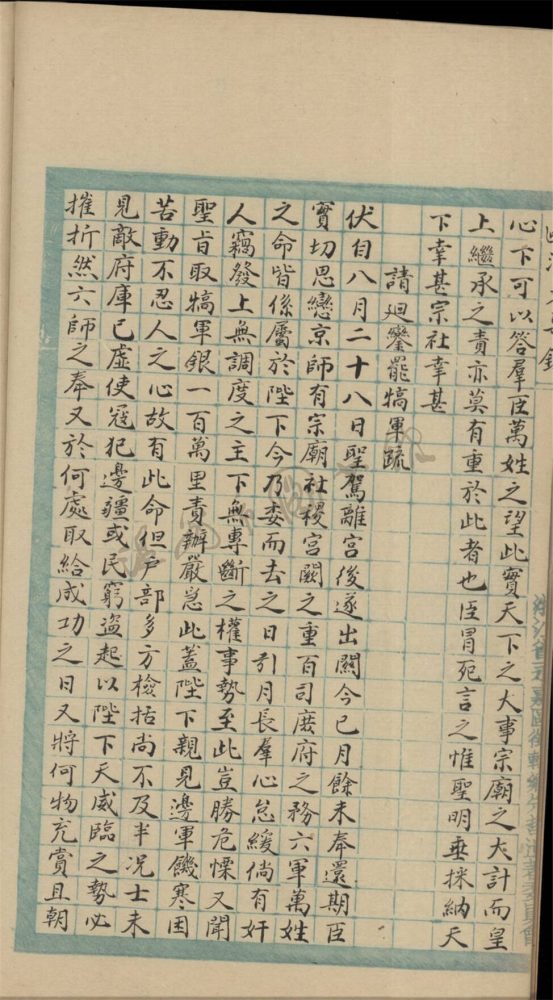 心下可以答羣臣萬姓之望此實天下之大事宗廟之大計而皇
上繼承之責亦莫有重於此者也臣冒死言之惟聖明垂採納天
下幸甚宗社幸甚
請迴鑾罷犒軍疏
伏自八月二十八日聖駕離宮後遂出關今已月餘未奉還期臣
實切思戀京師有宗廟社稷宮闕之重百司庶府之務六軍萬姓
之命皆係屬於陛下今乃委而去之日引月長羣心怠緩倘有奸
人竊發上無調度之主下無專斷之權事勢至此豈勝危慄又聞
聖旨取犒軍銀一百萬里責辦嚴急此蓋陛下親見邊軍饑寒困
苦動不忍人之心故有此命但戶部多方檢括尚不及半況士未
見敵府庫已虛使寇犯邊疆或民窮盜起以陛下天威臨之勢必
摧折然六師之奉又於何處取給成功之日又將何物充賞且朝